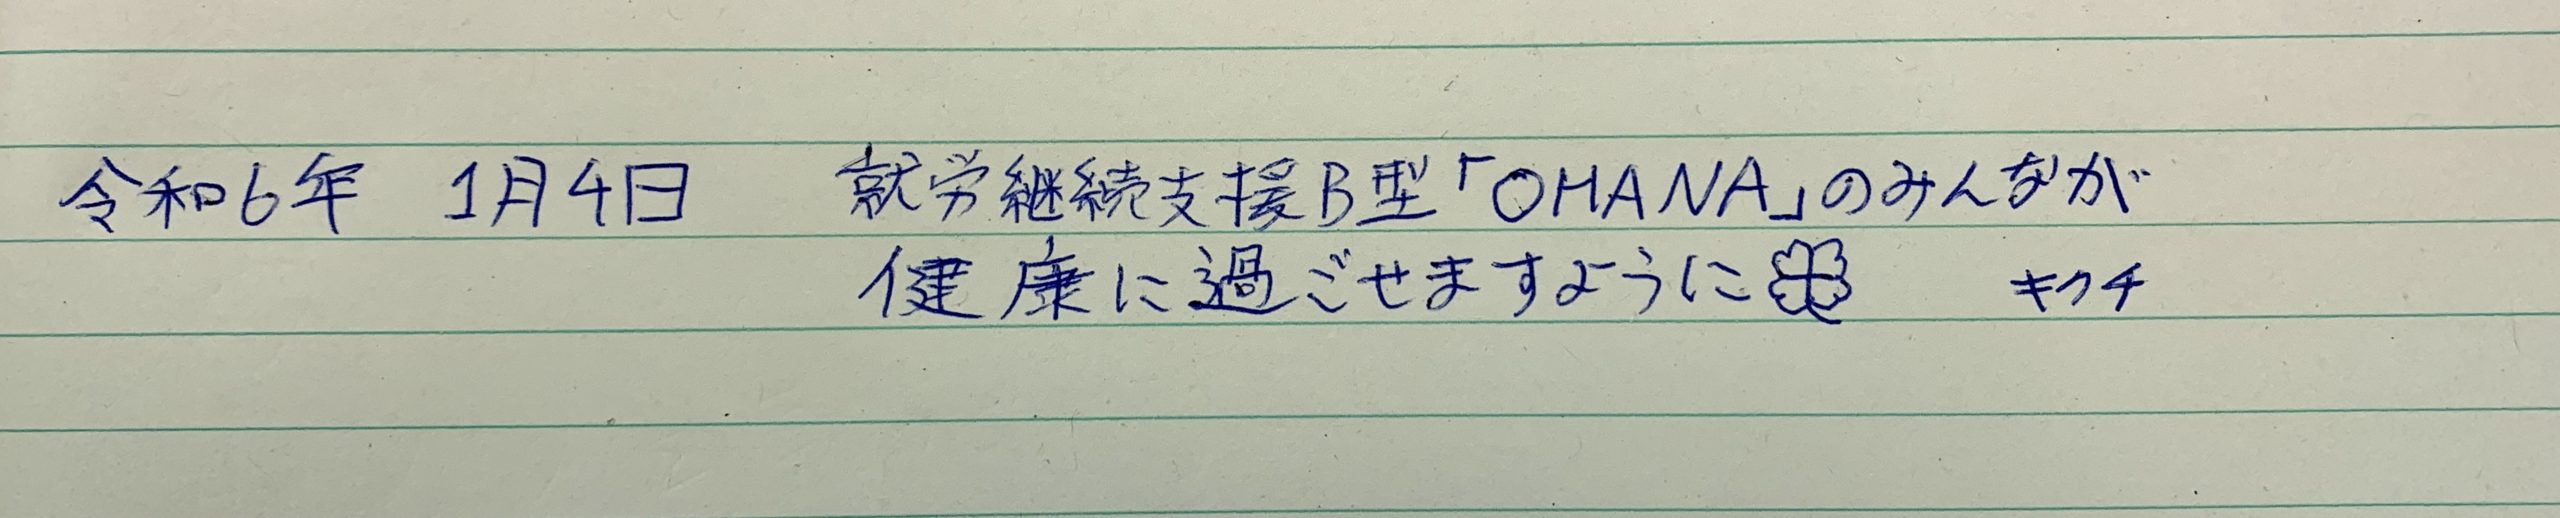 令和6年 1月4日 就労継続支援B型「OHANA」のみんなが
健康に過ごせますように キクチ